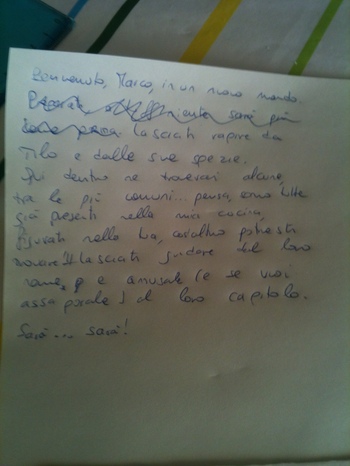 Benvenuto, Marco, in un nuovo mondo.
niente sarà più
come prima lasciati rapire da
Tilo e dalle sue spezie.
Qui dentro ne troverai alcune,
tra le più comuni... pensa, erano tutte
già presenti nella mia cucina,
figurati nella tua, cos'altro potresti
trovare! lasciati guidare dal loro
nome, e annusale (e se vuoi
assaporale) al loro capitolo.
Sarà... sarà!